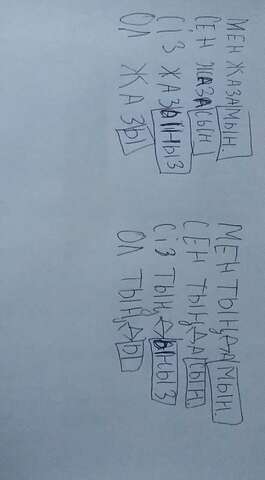 МЕН ЖАЗАМЫН.
СЕН ЖАЗАСЫН
СІЗ ЖАЗЫНЫЗ
ОЛ ЖАЗЫ
МЕН ТЫҢДАМЫН.
СЕН ТЫҢДАСЫН
СІЗ ТЫҢДЫНЫЗ
ОЛ ТЫҢДЫ